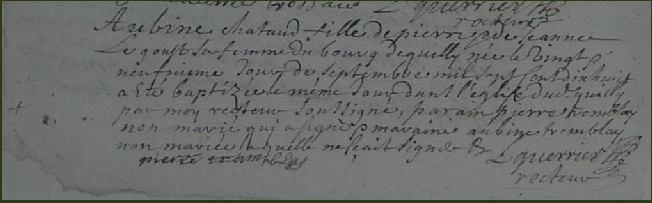 L guerrier
recteur
Aubine chataud fille de pierre et de jeanne
Le goust sa femme du bourg de quilly née le vingt
neufuime jour de septembre mil sept cent dix huit
a été baptizée le meme jour dans l'eglise dud quilly
par moy recteur soussigné, parain pierre tremblay
non marié qui a signé maraine aubine tremblay
non mariée laquelle ne sçait signer
L guerrier
pierre
recteur